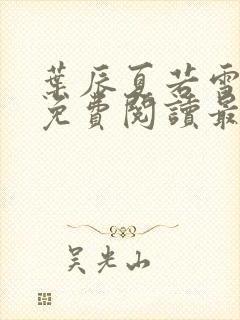 葉辰夏若雪
免費閱讀最
吴光山